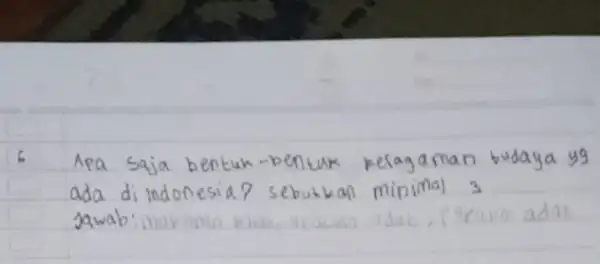 6 Apa saja bentuk-bentuk keragaman budaya yg
ada di indonesia? sebutkan minimal 3
Jawab: adat